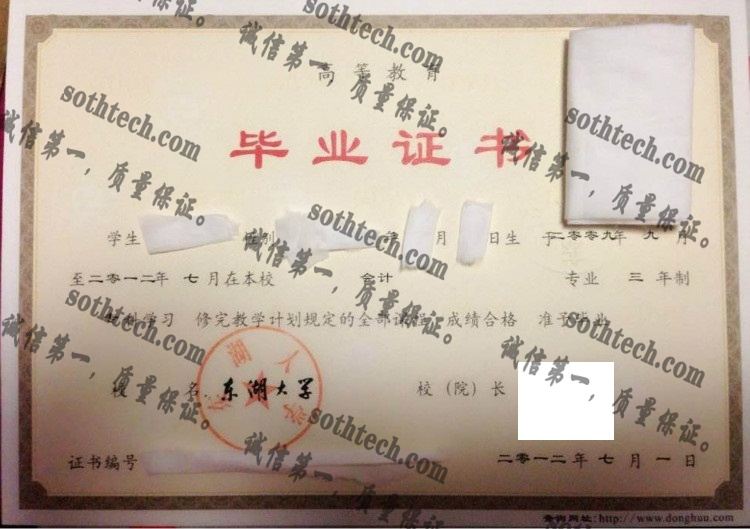 高等教育
毕业证书
学生 性别 月 日生 于二〇〇九年 九 月
至二〇一二年 七月在本校 会计 专业 三 年制
学习 修完教学计划规定的全部课程 成绩合格 准予毕业
校 名 东湖大学 校（院）长
证书编号 二〇一二年七月一日
查询网址:http://www.donghuu.com
sothtech.com
诚信第一，质量保证。
sothtech.com
诚信第一，质量保证。
sothtech.com
诚信第一，质量保证。
sothtech.com
诚信第一，质量保证。
sothtech.com
诚信第一，质量保证。
sothtech.com
诚信第一，质量保证。
sothtech.com
诚信第一，质量保证。
sothtech.com
诚信第一，质量保证。
sothtech.com
诚信第一，质量保证。